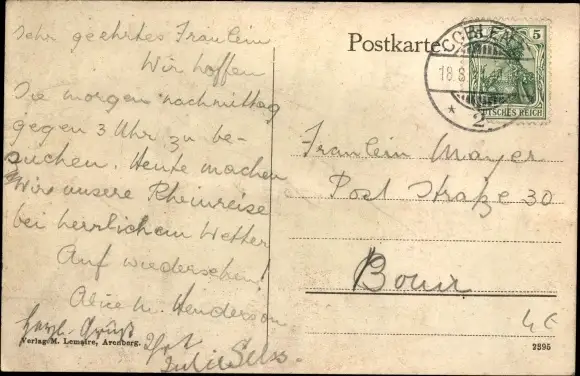 Sehr geehrtes Fräulein
Wir hoffen
Sie morgen nachmittag
gegen 3 Uhr zu be-
suchen. Heute machen
Wir unsere Rheinreise
bei herrlichem Wetter
Auf wiedersehen!
Alice M. Henderson
Herzl. Gruß
Julie
Verlag M. Lemaire, Arenberg.
Postkarte
COBLENZ
18.8
* 2
5
DEUTSCHES REICH
Fräulein Mayer
Post Straße 30
Bonn
4€
2295